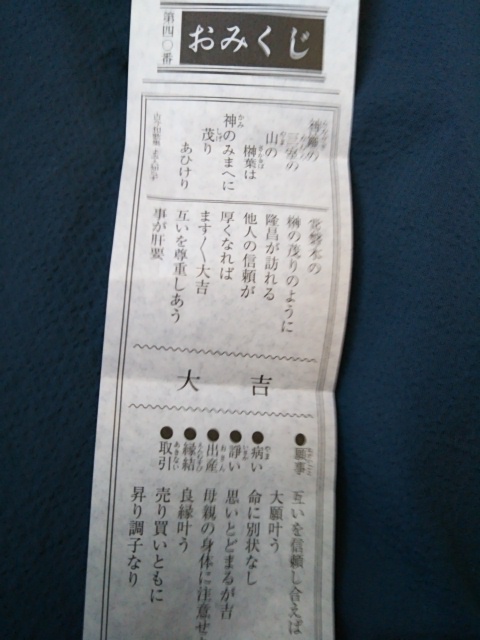 おみくじ
第四〇番
神籬の
三室の
山の
榊葉は
神のみまへに
茂り
あひけり
常磐木の
榊の茂りのように
隆昌が訪れる
他人の信頼が
厚くなれば
ます〳〵大吉
互いを尊重しあう
事が肝要
大吉
●願事 互いを信頼し合えば
大願叶う
●病い 命に別状なし
●諍い 思いとどまるが吉
●出産 母親の身体に注意せ
●縁結 良縁叶う
●取引 売り買いともに
昇り調子なり